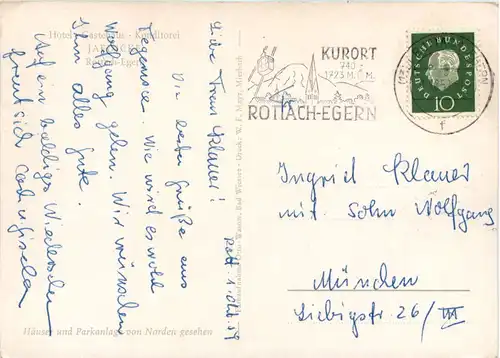 Hotel - Gästehaus - Konditorei
Rottach-Egern
Rott. 1. Okt. 59
Liebe Frau Klauer!
Die besten Grüße aus
Tegernsee. Wie wird es wohl
Wolfgang gehen. Wir wünschen
Ihm alles Gute.
Auf ein baldiges Wiedersehen
freut sich
Häuser und Parkanlage von Norden gesehen
KURORT
740 -
1723 M.Ü.M.
ROTTACH-EGERN
DEUTSCHE BUNDESPOST
10
f
Ingrid Klauer
mit Sohn Wolfgang
München
Liebigstr 26/III